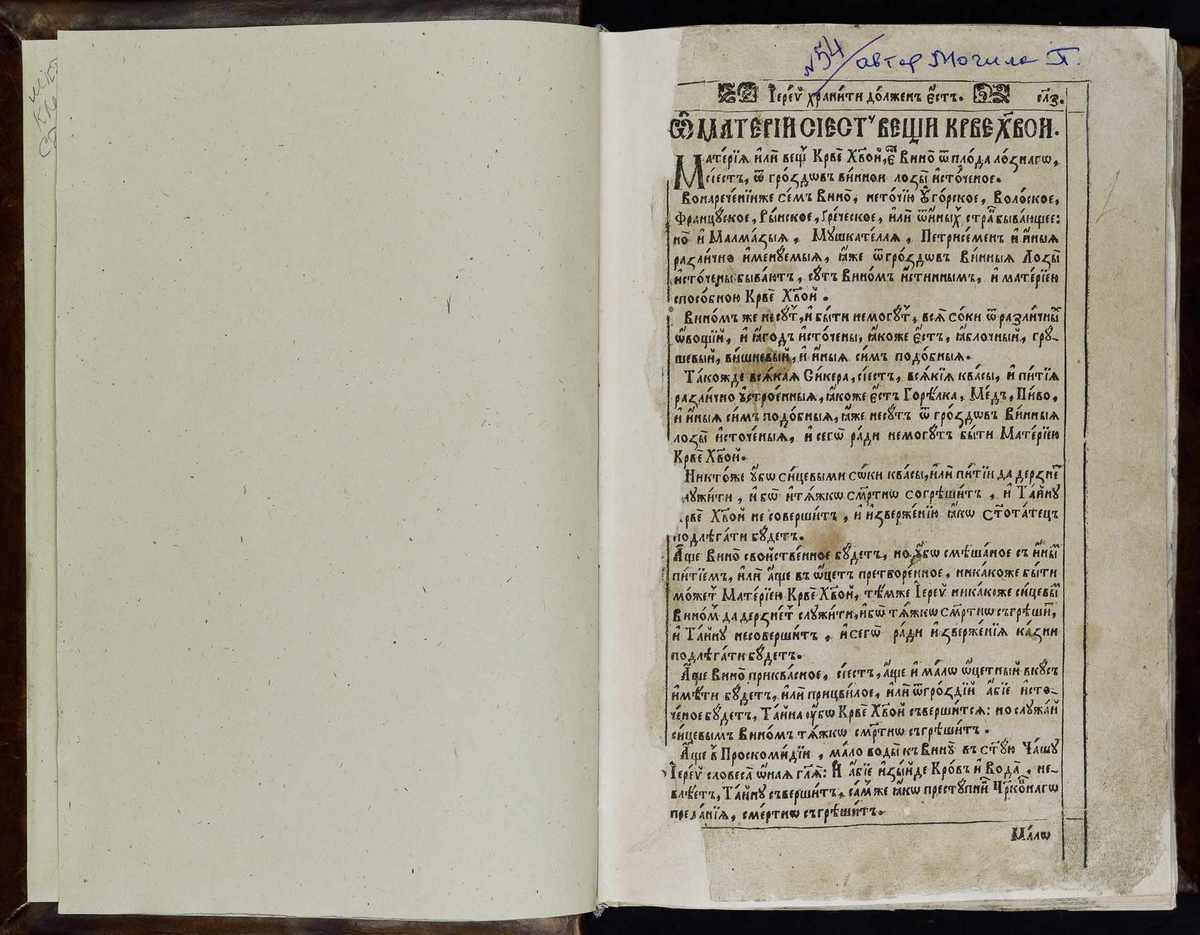 №54/автор Могила П.
Іерей хранити до́лженъ є҆́стъ. сл҃з.
Ѿ МАТЕРІИ СІЕСТЪ ВЕЩИ КРВЕ ХВ҃ОИ.
Мате́рїѧ и҆лѝ вещъ Крве Хв҃ой, є҆́ Вино̀ ѿ пло́да ло́знагѡ,
сі́естъ, ѿ гро́здѡвъ ви́ннои лозы̀ и҆сточе́ное.
Вонарече́нїиже се́мъ Вино̀, неточїю Оу҆го́рское, Воло́ское,
Францу́ское, Ры́нское, Гре́ческое, и҆лѝ ѿи҆́ныхъ стра̑ быва́ющее:
но̀ и҆ Малма́зыѧ, Мушкате́лаѧ, Петрисе́менъ и҆ и҆́ныѧ
разли́чнѡ и҆менуемыѧ, ꙗ҆́же ѿгро́здѡвъ Ви́нныѧ Лозы̀
и҆сто́чены быва́ютъ, су́тъ вино́мъ и҆́стиннымъ, и҆ мате́рїею
спосо́бною Крвѐ Хв҃ой.
Вино́мъ же несу́тъ, и҆ бы́ти немогу́тъ, всѧ̀ со́ки ѿ разли́чны̑
ѡ҆во́щїй, и҆ ꙗ҆́годъ и҆сто́чены, ꙗ҆́коже є҆́стъ, ꙗ҆́блочный, гру-
шевый, ви́шневый, и҆ и҆́ныѧ си́мъ подо́бныѧ.
Та́кожде всѧ́каѧ Си́кера, сі́естъ, всѧ́кїѧ ква́сы, и҆ пи́тїѧ
разли́чно оу҆строе́нныѧ, ꙗ҆́коже є҆́стъ Горѣ́лка, Ме́дъ, Пи́во,
и҆ и҆́ныѧ си́мъ подо́бныѧ, ꙗ҆́же несу́тъ ѿ гро́здѡвъ Ви́нныѧ
лозы̀ и҆сточе́ныѧ, и҆ сегѡ̀ ра́ди немогу́тъ бы́ти Мате́рїею
Крвѐ Хв҃ой.
Никто́же оу҆́бѡ си́цевыми со́ки ква́сы, и҆лѝ пи́тїи да дерзне̑
лужи́ти, и҆́бѡ и҆ тѧ́жкѡ см҃ртнѡ согрѣши́тъ, и҆ Та́йну
рвѐ Хв҃ой не соверши́тъ, и҆ и҆зверже́нїю ꙗ҆́кѡ ст҃ота́тецъ
подлѣга́ти бу́детъ.
А҆́ще Вино̀ сво́йственное бу́детъ, но оу҆́бѡ смѣ́шаное съ и҆ны̑
пи́тїемъ, и҆лѝ а҆́ще въ ѡ҆́цетъ претворе́нное, ника́коже бы́ти
мо́жетъ Мате́рїею Крвѐ Хв҃ой, тѣ́мже Іере́й ника́коже си́цевы̑
Вино́м да дерзне́тъ служи́ти, и҆́бѡ тѧ́жкѡ см҃ртнѡ съгрѣши̑,
и҆ Та́йну несоверши́тъ, и҆ сегѡ̀ ра́ди и҆зверже́нїѧ ка́зни
подлѣга́ти бу́детъ.
А҆́ще Вино̀ приква́сное, сі́естъ, а҆́ще и҆ ма́лѡ ѡ҆́цетный вкусъ
и҆мѣ́ти бу́детъ, и҆лѝ прицви́лое, и҆лѝ ѿгро́здїй а҆́бїе и҆сто-
че́ное бу́детъ, Та́йна оу҆́бѡ Крвѐ Хв҃ой съверши́тсѧ: но служа́й
си́цевымъ Вино́мъ тѧ́жкѡ см҃ртнѡ съгрѣши́тъ.
А҆́ще в̾ Проскоми́дїи, ма́ло воды̀ къ Вину̀ въ ст҃у́ю Ча́шу
Іере́й словеса̀ ѡ҆́наѧ гл҃ѧ: И҆ а҆́бїе и҆зы́йде Кро́въ и҆ Вода̀, не-
влѣ́етъ, Та́йну съверши́тъ, са́мже ꙗ҆́кѡ престу́пни̑ Чр҃ко́внагѡ
преда́нїѧ, сме́ртнѡ съгрѣши́тъ.
Ма́лѡ